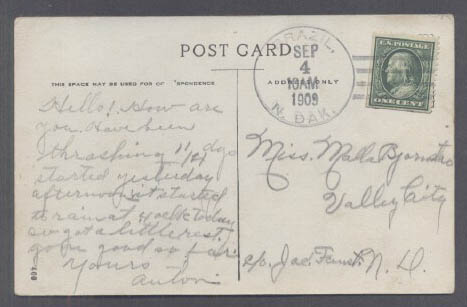 POST CARD
THIS SPACE MAY BE USED FOR CORRESPONDENCE
ADDRESS ONLY
BRAZIL,
SEP
4
10AM
1909
N. DAK.
U.S. POSTAGE
ONE CENT
Hello! How are
you. Have been
thrashing 1 1/4 dys
started yesterday
afternoon it started
to rain at 4 oclk today
so got a little rest.
goin good so far.
Yours
Anton
Miss. Malla
Valley City
c/o. Jac. Faust. N. D.